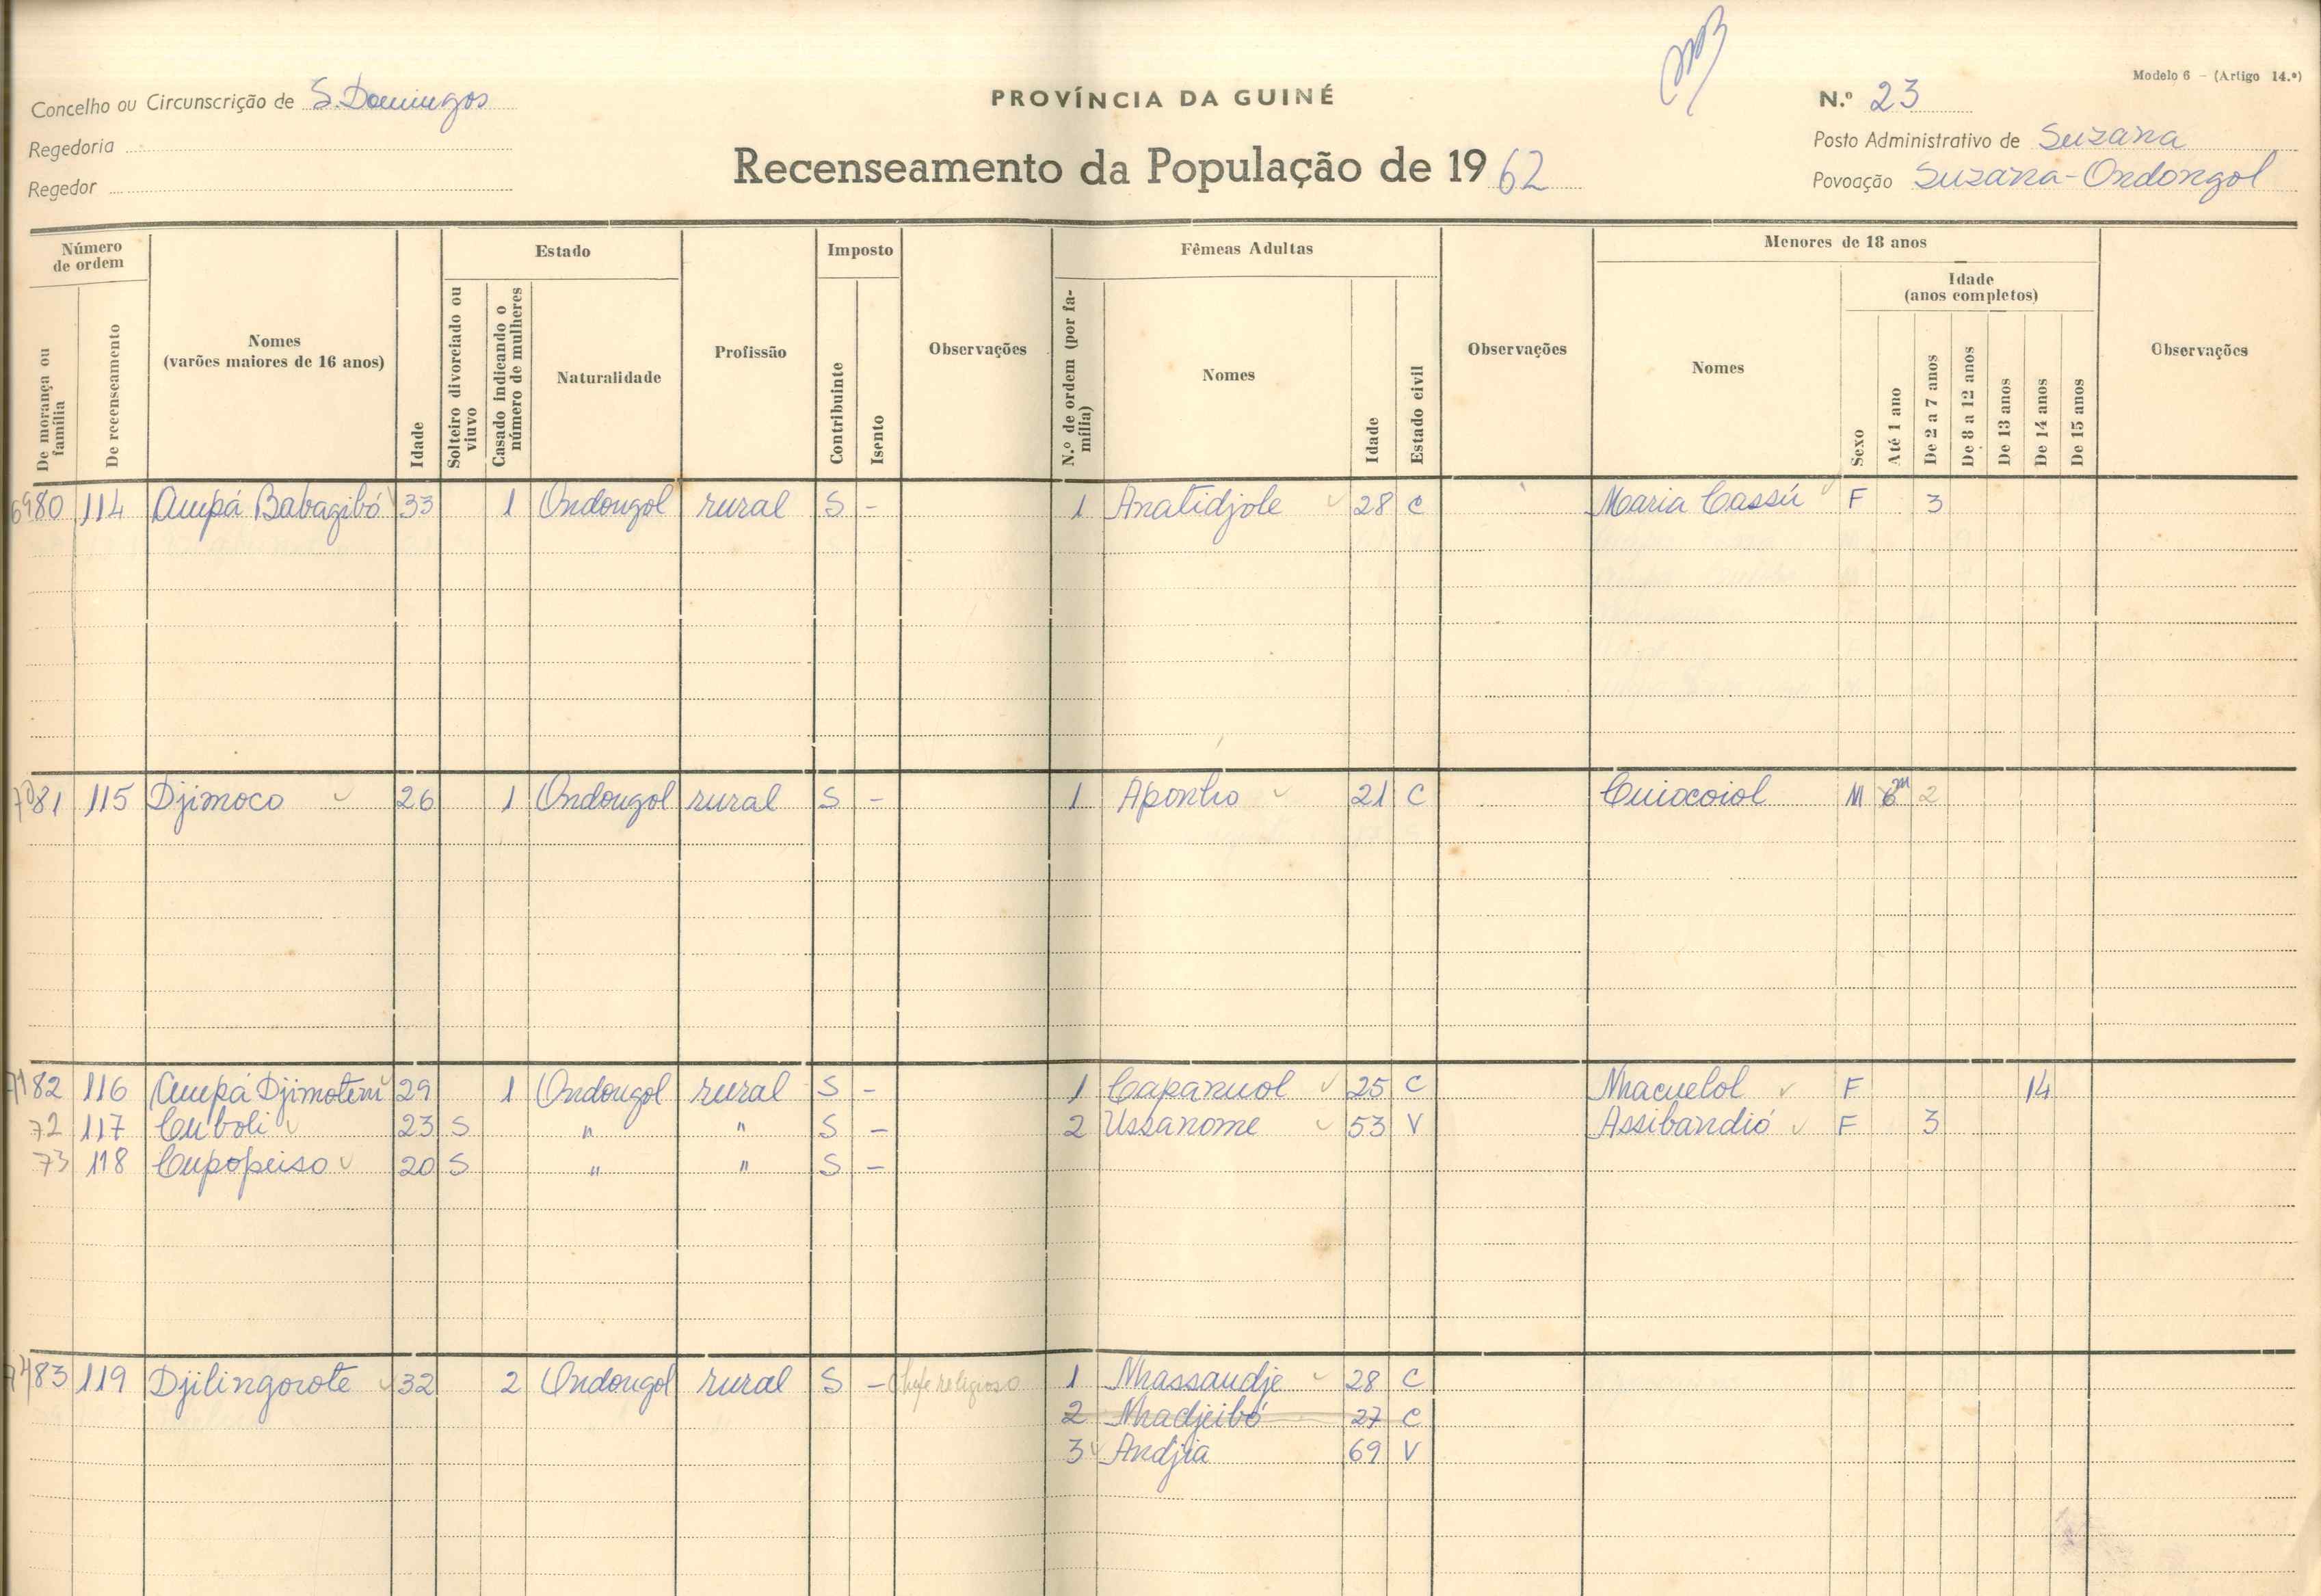 Modelo 6 - (Artigo 14.º)
Concelho ou Circunscrição de S. Domingos
PROVÍNCIA DA GUINÉ
N.º 23
Regedoria
Posto Administrativo de Suzana
Regedor
Recenseamento da População de 1962
Povoação Suzana-Ondongol
Número de ordem
De morança ou família
De recenseamento
Nomes (varões maiores de 16 anos)
Idade
Estado
Solteiro divorciado ou viuvo
Casado indicando o número de mulheres
Naturalidade
Profissão
Imposto
Contribuinte
Isento
Observações
Fêmeas Adultas
N.º de ordem (por família)
Nomes
Idade
Estado civil
Observações
Menores de 18 anos
Nomes
Sexo
Idade (anos completos)
Até 1 ano
De 2 a 7 anos
De 8 a 12 anos
De 13 anos
De 14 anos
De 15 anos
Observações
69 80 114 Ampá Babagibó 33 1 Ondongol rural S - 1 Anatidjole 28 C Maria Cassú F 3
70 81 115 Djimoco 26 1 Ondongol rural S - 1 Aponho 21 C Cuiocoiol M 6m 2
71 82 116 Ampá Djimotem 29 1 Ondongol rural S - 1 Capanuol 25 C Nhacuelol F 14
72 117 Cuboli 23 S " " S - 2 Ussanome 53 V Assibandió F 3
73 118 Cupopeiso 20 S " " S -
74 83 119 Djilingorote 32 2 Ondongol rural S - Chefe religioso 1 Nhassaudje 28 C
2 Nhadjeibó 27 C
3 Andjia 69 V